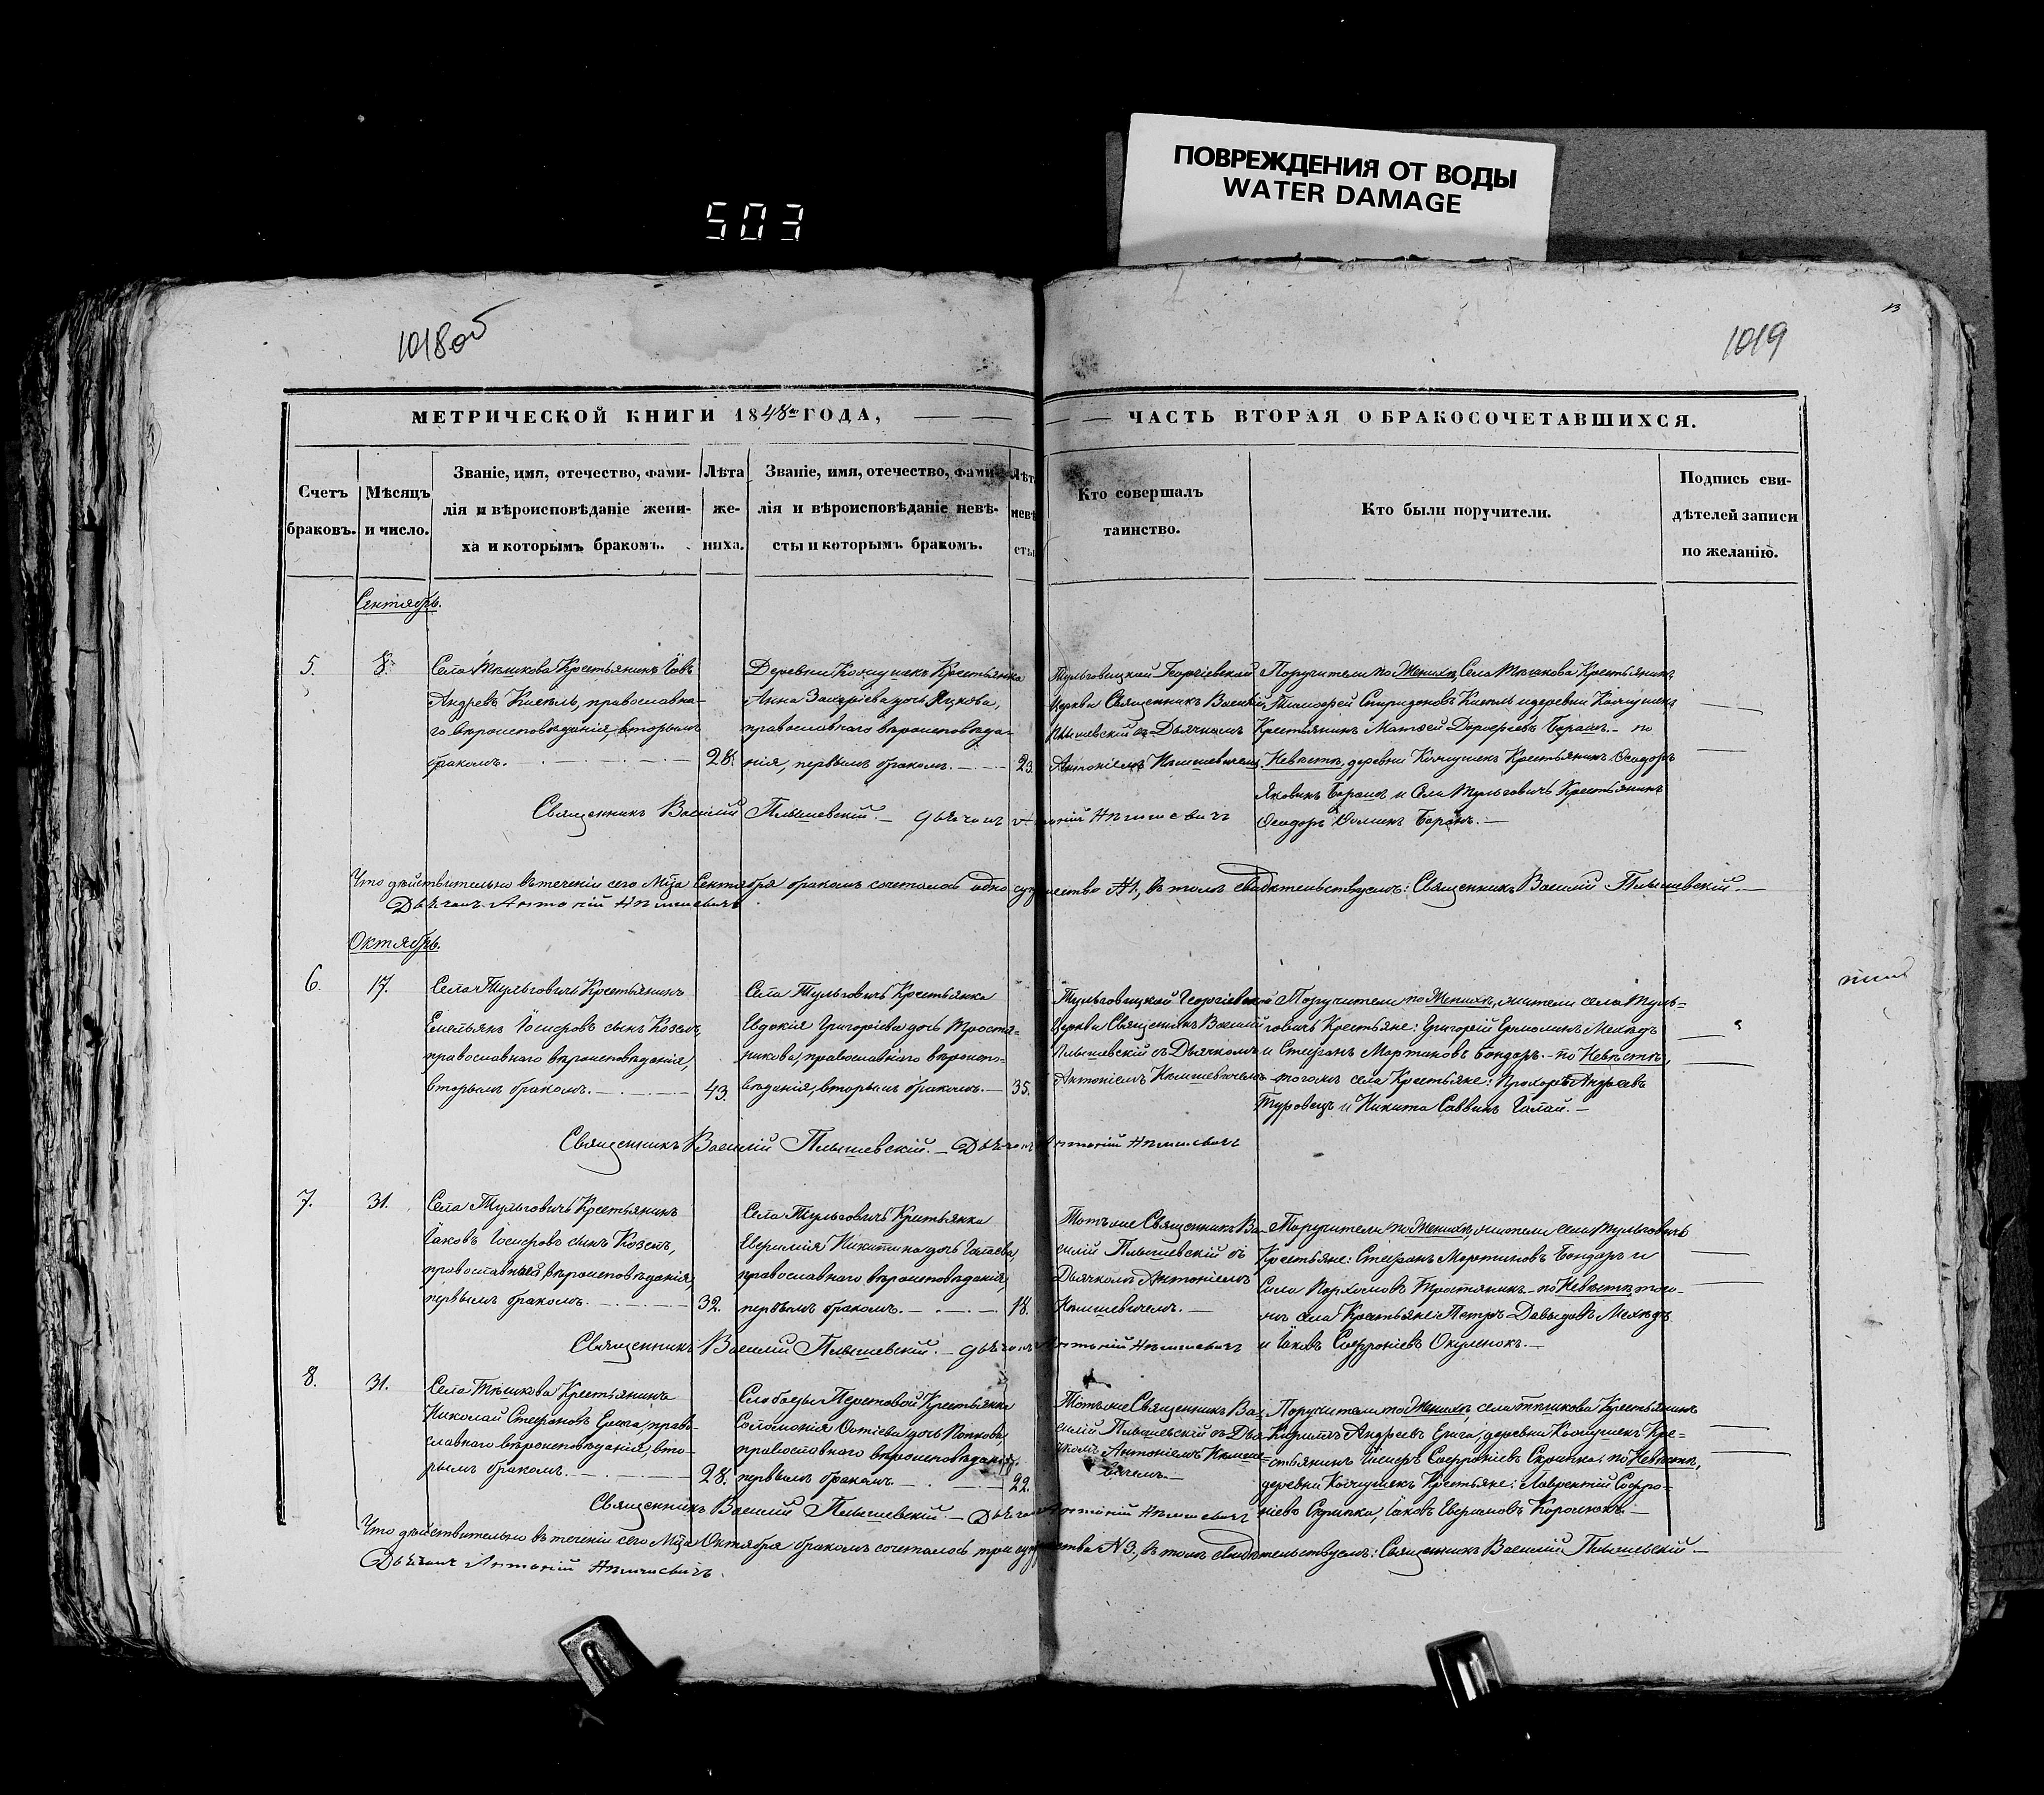 ПОВРЕЖДЕНИЯ ОТ ВОДЫ
WATER DAMAGE
503
1018об
1019
13
МЕТРИЧЕСКОЙ КНИГИ 1848го ГОДА,
ЧАСТЬ ВТОРАЯ О БРАКОСОЧЕТАВШИХСЯ.
Счетъ браковъ.
Мѣсяцъ и число.
Званіе, имя, отечество, фами-
лія и вѣроисповѣданіе жени-
ха и которымъ бракомъ.
Лѣта
же-
ниха.
Званіе, имя, отечество, фами-
лія и вѣроисповѣданіе невѣ-
сты и которымъ бракомъ.
Лѣта
невѣ
сты
Кто совершалъ
таинство.
Кто были поручители.
Подпись сви-
дѣтелей записи
по желанію.
Сентябрь.
5.
8.
Села Тѣшкова Крестьянинъ Іовъ
Андреевъ Кисель, православна-
го вѣроисповѣданія, вторымъ
бракомъ.
28.
Деревни Кожушекъ Крестьянка
Анна Захаріева дочь Яцкова,
православнаго вѣроисповѣда-
нія, первымъ бракомъ.
23.
Тульговицкой Георгіевской
Церкви Священникъ Василій
Плышевскій съ Дьячкомъ
Антоніемъ
Поручители по Женихѣ, Села Тѣшкова Крестьянинъ
Тимофей Спиридоновъ Кисель и деревни Кожушекъ
Крестьянинъ Матѳей Дорофеевъ Баранъ. - по
Невѣстѣ, деревни Кожушекъ Крестьянинъ Ѳеодоръ
Яковинъ Баранъ и Села Тульговичъ Крестьянинъ
Ѳеодоръ Ѳоминъ Баранъ.
Священникъ Василій Плышевскій. - Дьячокъ Антоній
Что дѣйствительно въ теченіи сего Мца Сентября бракомъ сочеталось одно супружество №1, въ томъ свидѣтельствуемъ: Священникъ Василій Плышевскій.
Дьячокъ Антоній
Октябрь.
6.
17.
Села Тульговичъ Крестьянинъ
Емельянъ Іосифовъ сынъ Козелъ,
православнаго вѣроисповѣданія,
вторымъ бракомъ.
43.
Села Тульговичъ Крестьянка
Евдокія Григоріева дочь Тростя-
никова, православнаго вѣроиспо-
вѣданія, вторымъ бракомъ.
35.
Тульговицкой Георгіевской
Церкви Священникъ Василій
Плышевскій съ Дьячкомъ
Антоніемъ
Поручители по Женихѣ, жители села Туль-
говичъ Крестьяне: Григорій Ермолинъ Мехѣдъ
и Стефанъ Мартиновъ Бондарь. - по Невѣстѣ,
тогожъ села Крестьяне: Прохоръ Андреевъ
Туровецъ и Никита Саввинъ Галай.
Священникъ Василій Плышевскій. - Дьячокъ Антоній
7.
31.
Села Тульговичъ Крестьянинъ
Іаковъ Іосифовъ сынъ Козелъ,
православный вѣроисповѣданія,
первымъ бракомъ.
32.
Села Тульговичъ Крестьянка
Евфимія Никитина дочь Галаева,
православнаго вѣроисповѣданія,
первымъ бракомъ.
18.
Тотъже Священникъ Ва-
силій Плышевскій съ
Дьячкомъ Антоніемъ
Поручители по Женихѣ, жители села Тульговичъ
Крестьяне: Стефанъ Мартиновъ Бондарь и
Сила Пархомовъ Тростяникъ - по Невѣстѣ, того-
жъ села Крестьяне: Петръ Давыдовъ Мехѣдъ
и Іаковъ Софроніевъ Окуленокъ.
Священникъ Василій Плышевскій. - Дьячокъ Антоній
8.
31.
Села Тѣшкова Крестьянинъ
Николай Стефановъ Ерига, право-
славнаго вѣроисповѣданія, вто-
рымъ бракомъ.
28.
Слободы Крестьянка
Соломонія дочь Попкова
православнаго вѣроисповѣданія,
первымъ бракомъ.
22.
Тотъже Священникъ Ва-
силій Плышевскій съ Дья-
чкомъ Антоніемъ
Поручители по Женихѣ, села Тѣшкова Крестьянинъ
Кириллъ Андреевъ Ерига, деревни Кожушекъ Кре-
стьянинъ Іосифъ Софроніевъ Скрипка, по Невѣстѣ,
деревни Кожушекъ Крестьяне: Лаврентій Софро-
ніевъ Скрипка, Іаковъ Евфимовъ
Священникъ Василій Плышевскій. - Дьячокъ Антоній
Что дѣйствительно въ теченіи сего Мца Октября бракомъ сочеталось три супружества №3, въ томъ свидѣтельствуемъ: Священникъ Василій Плышевскій
Дьячокъ Антоній